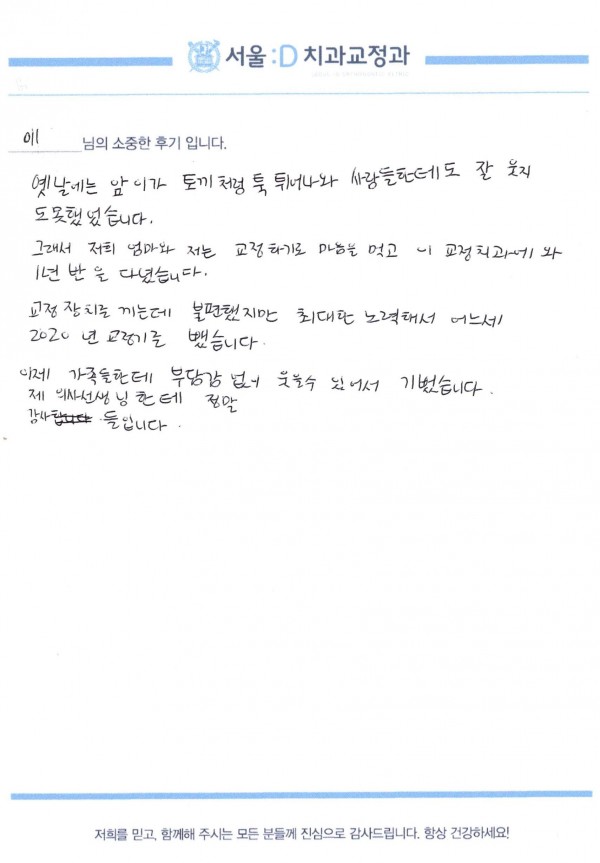 서울:D 치과교정과
예 님의 소중한 후기 입니다.
옛날에는 앞이가 토끼처럼 툭 튀어나와 사람들한테도 잘 웃지
도못했었습니다.
그래서 저희 엄마와 저는 교정하기로 마음을 먹고 이 교정치과에 와
1년 반을 다녔습니다.
교정장치를 끼는데 불편했지만 최대한 노력해서 어느세
2020년 교정기를 뺐습니다.
이제 가족들한테 부담감 없이 웃을수 있어서 기뻤습니다.
제 의사선생님한테 정말
감사합니다 들입니다.
저희를 믿고, 함께해 주시는 모든 분들께 진심으로 감사드립니다. 항상 건강하세요!